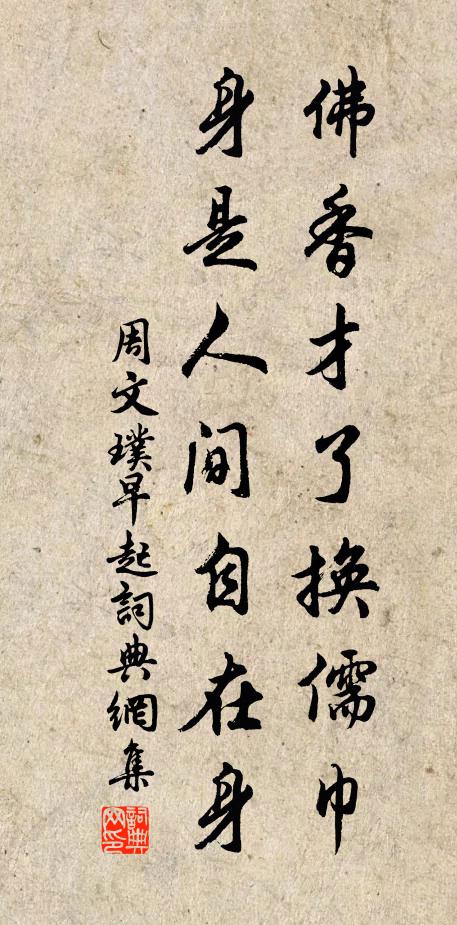 佛香才了換儒巾
身是人间自在身
周文璞早起詞典網集
詞典网印